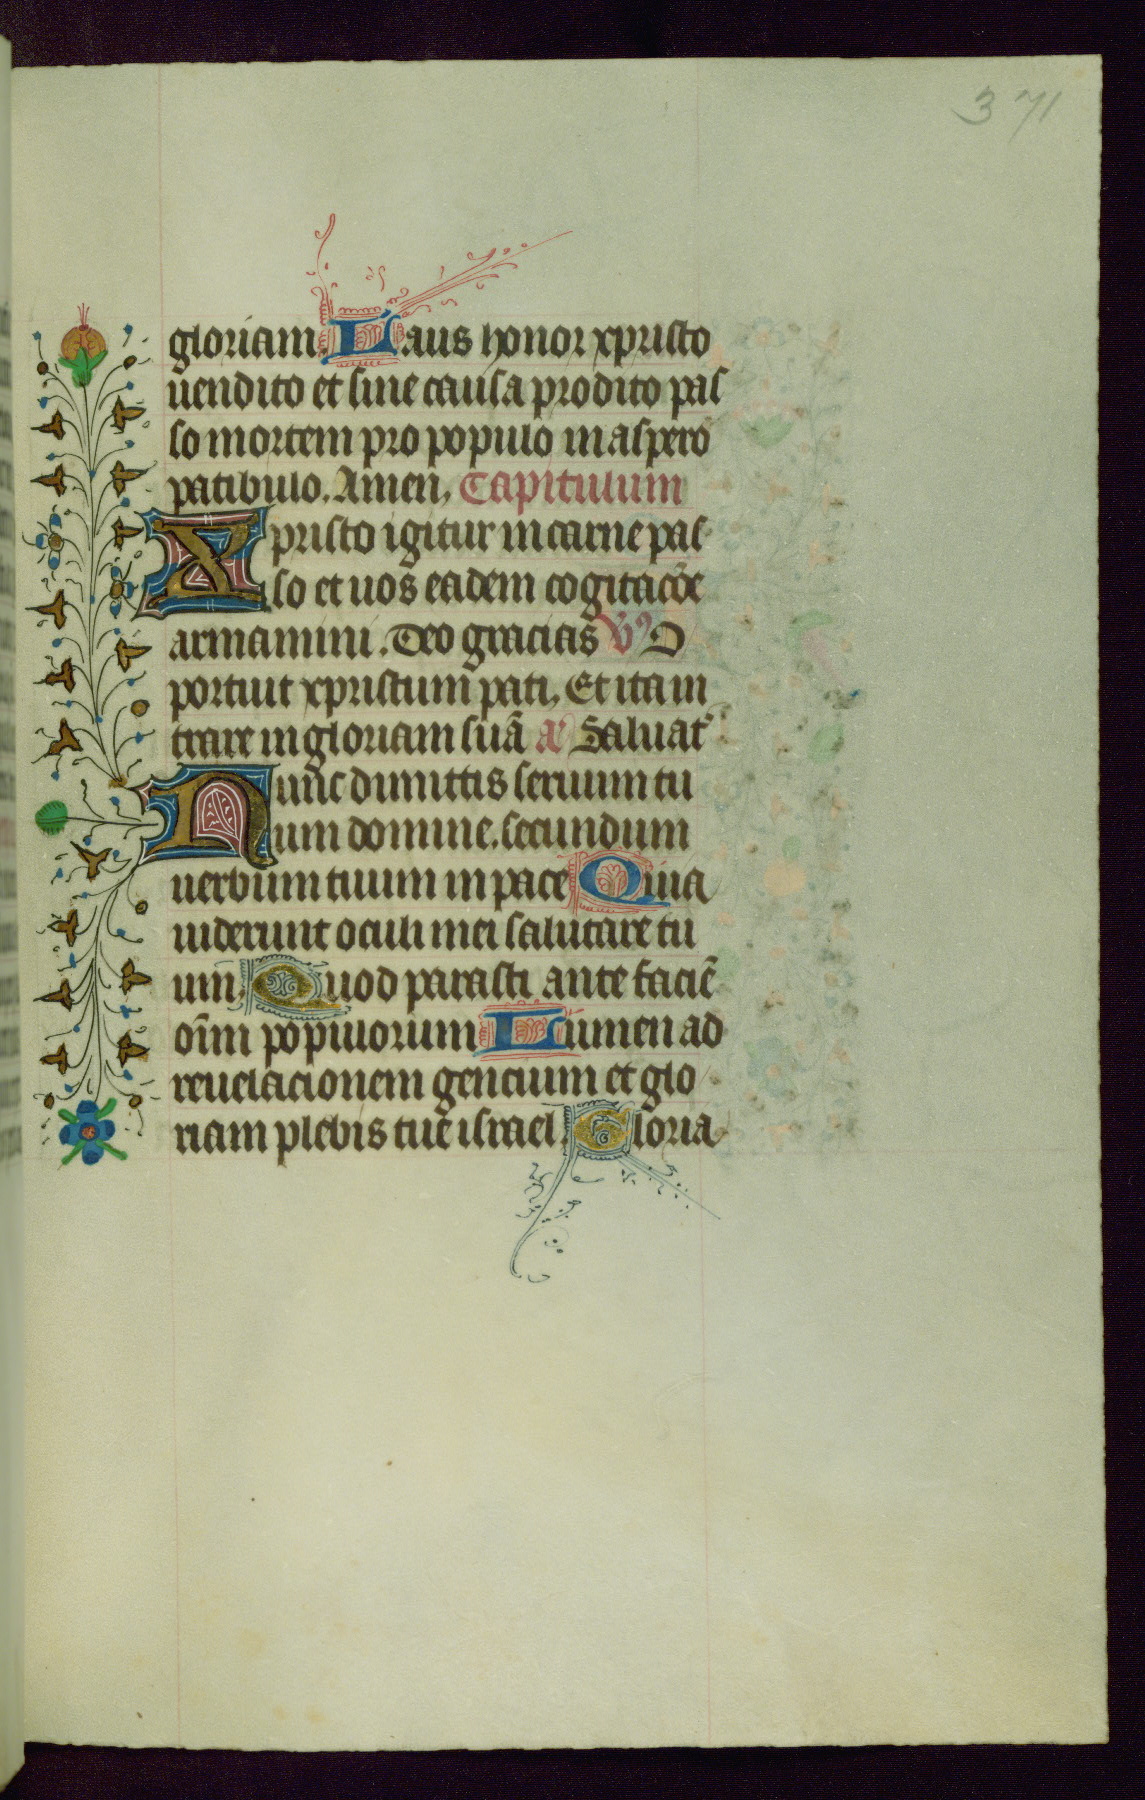 371
gloriam. Laus honor xpristo
uendito et sine causa prodito pas
so mortem pro populo in aspero
patibulo. Amen. Capitulum
Xpristo igitur in carne pas
so et uos eadem cogitacōe
armamini. Deo gracias V9 O
portuit xpristum pati, Et ita in
trare in gloriam suā a͛ Saluat͛
Nunc dimittis seruum tu
um domine. secundum
uerbum tuum in pace Quia
uiderunt oculi mei salutare tu
um, Quod parasti ante faciē
oīm populorum Lumen ad
reuelacionem gencium et glo
riam plebis tue israel. Gloria